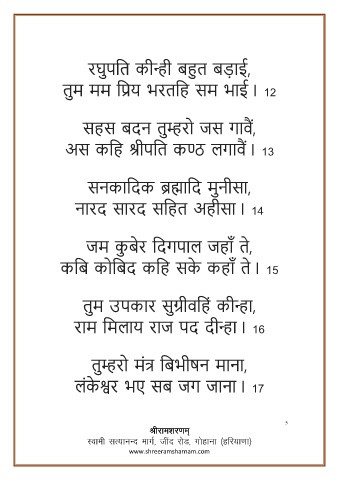 रघुपति कीन्ही बहुत बड़ाई,
तुम मम प्रिय भरतहि सम भाई । 12
सहस बदन तुम्हरो जस गावैं,
अस कहि श्रीपति कण्ठ लगावैं । 13
सनकादिक ब्रह्मादि मुनीसा,
नारद सारद सहित अहीसा । 14
जम कुबेर दिगपाल जहाँ ते,
कबि कोबिद कहि सके कहाँ ते । 15
तुम उपकार सुग्रीवहिं कीन्हा,
राम मिलाय राज पद दीन्हा । 16
तुम्हरो मंत्र बिभीषन माना,
लंकेश्वर भए सब जग जाना । 17
5
श्रीरामशरणम्
स्वामी सत्यानन्द मार्ग, जींद रोड, गोहाना (हरियाणा)
www.shreeramsharnam.com